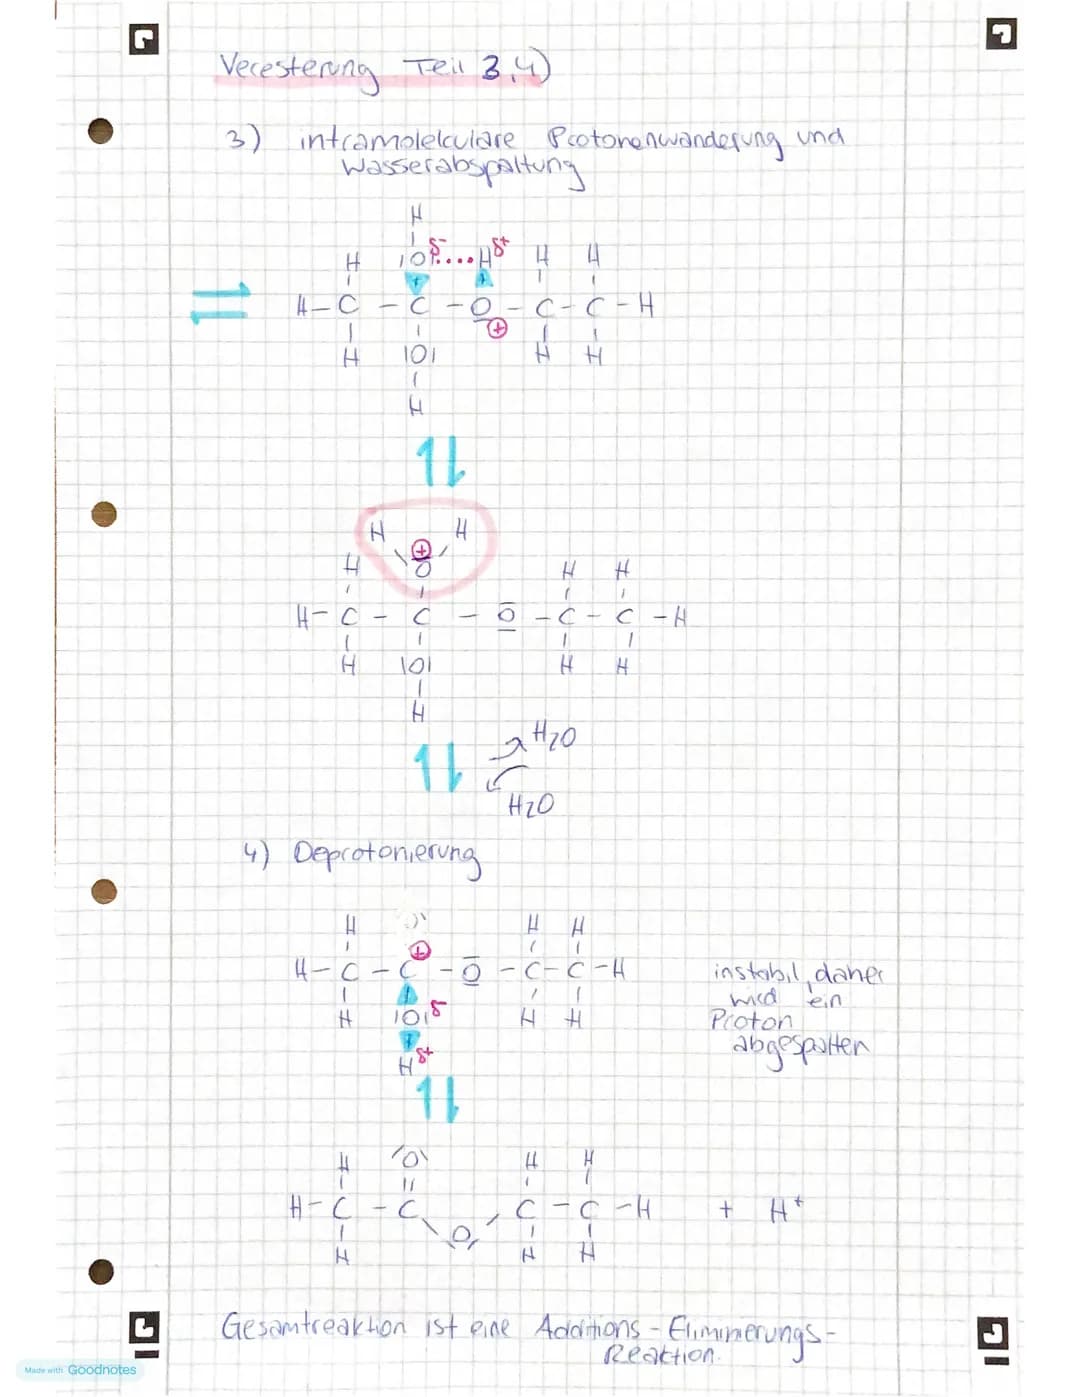 Veresterung Teil 3,4)
3) intramolekulare Protonenwanderung und
Wasserabspaltung
H
H IOI δ- ... H δ+ H H
H-C-C-O-C-C-H
⊕
H IOI H H
H
H H
H ⊕ O H H
H-C-C-O-C-C-H
H IOI H H
H
H2O
H2O
4) Deprotonierung
H H H
H-C-C⊕-O-C-C-H
H IOI δ- H H
H δ+
instabil, daher
wird ein
Proton
abgespalten
H O H H
H-C-C C-C-H + H+
O
H H H
Gesamtreaktion ist eine Additions-Eliminierungs-
Reaktion.
Made with Goodnotes